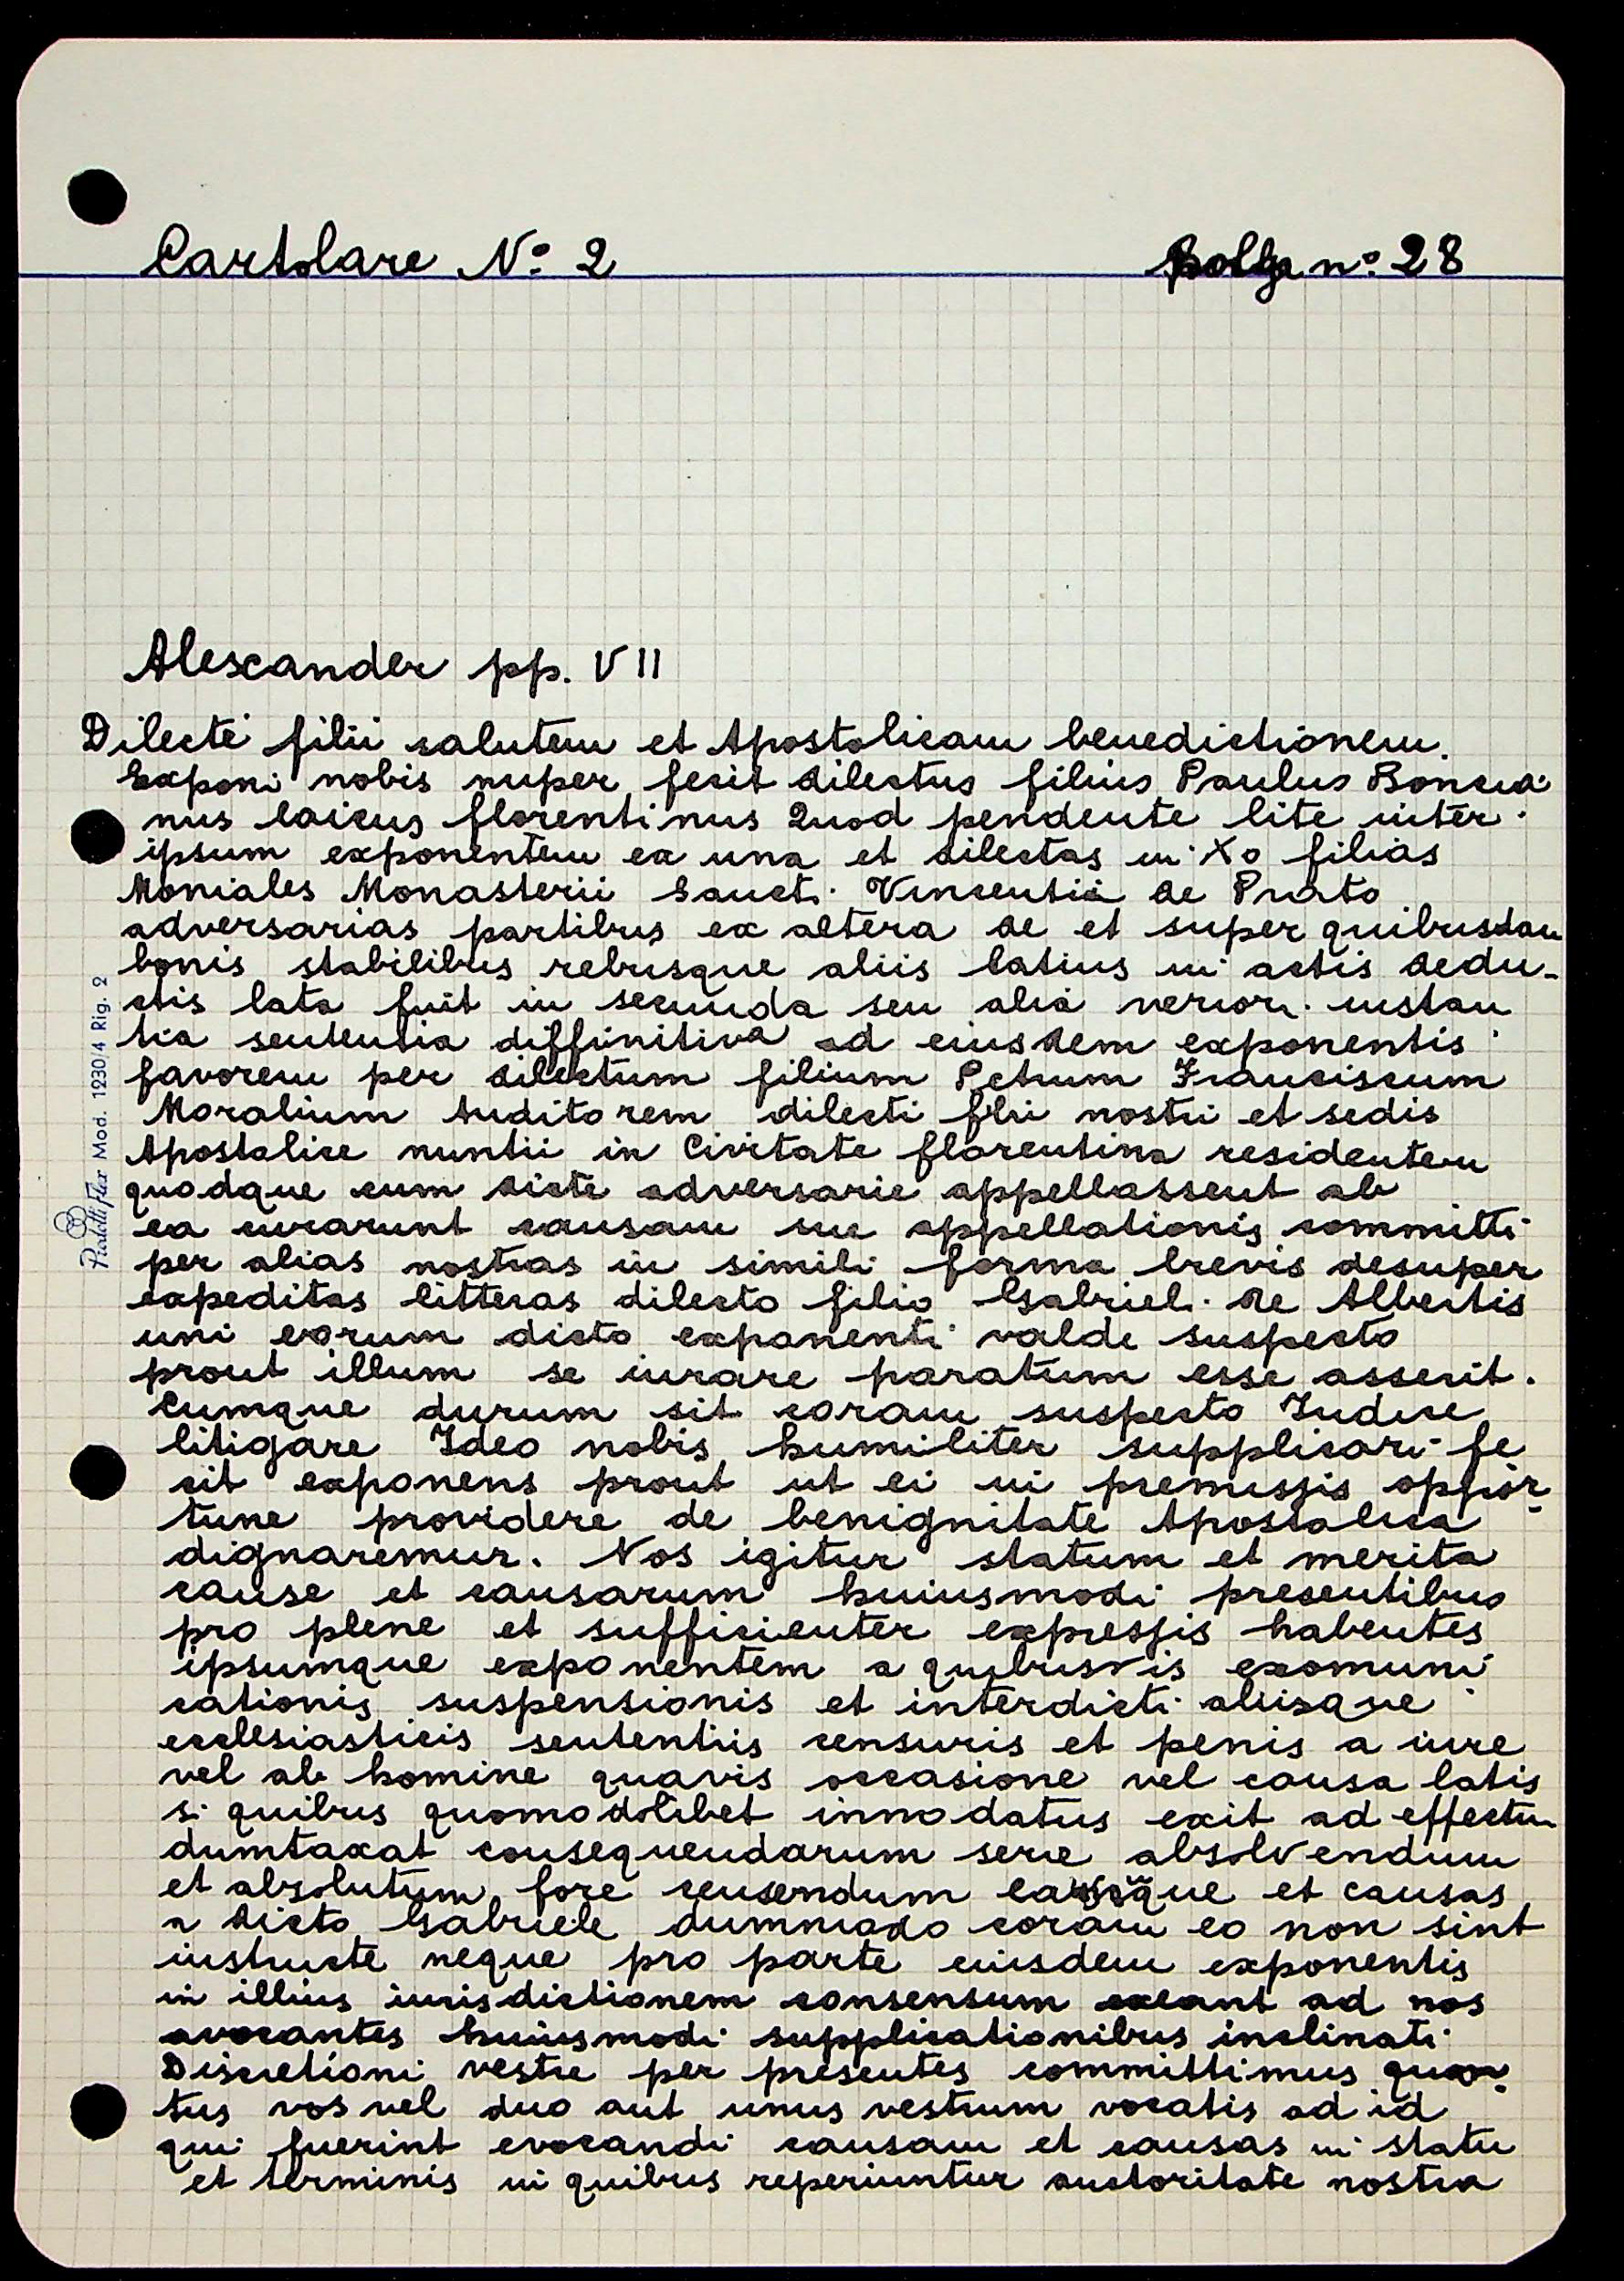 Cartolare N° 2
Bolla n° 28
Alexander pp. VII
Dilecti filii salutem et Apostolicam benedictionem.
Exponi nobis nuper fecit dilectus filius Paulus Boncia
nus laicus florentinus Quod pendente lite inter
ipsum exponentem ex una et dilectas in Xo filias
Moniales Monasterii Sancti Vincentii de Prato
adversarias partibus ex altera de et super quibusdam
bonis stabilibus rebusque aliis latius in actis dedu-
ctis lata fuit in secunda seu alia verior. instan
tia sententia diffinitiva ad eiusdem exponentis
favorem per dilectum filium Petrum Franciscum
Moralium Auditorem dilecti flii nostri et sedis
Apostolice nuntii in Civitate florentina residentem
quodque cum dicte adversarie appellassent ab
ea curarunt causam sue appellationis committi
per alias nostras in simili forma brevis desuper
expeditas litteras dilecto filio Gabriel. de Albertis
uni eorum dicto exponenti valde suspecto
prout illum se iurare paratum esse asserit.
Cumque durum sit coram suspecto Iudice
litigare Ideo nobis humiliter supplicari fe
cit exponens prout ut ei in premissis oppor-
tune providere de benignitate Apostolica
dignaremur. Nos igitur statum et merita
cause et causarum huiusmodi presentibus
pro plene et sufficienter expressis habentes
ipsumque exponentem a quibusvis exomuni
cationis suspensionis et interdicti aliisque
ecclesiasticis sententiis censuris et penis a iure
vel ab homine quavis occasione vel causa latis
si quibus quomodolibet innodatus exit ad effectum
dumtaxat consequendarum serie absolvendum
et absolutum fore censendum et causas
a dicto Gabriele dummodo coram eo non sint
instructe neque pro parte eiusdem exponentis
in illius iurisdictionem consensum ad nos
avocantes huiusmodi supplicationibus inclinati
Discretioni vestre per presentes committimus quan-
tus vos vel duo aut unus vestrum vocatis ad id
qui fuerint evocandi causam et causas in statu
et terminis in quibus reperiuntur auctoritate nostra
Pratelli Flex Mod. 1230/4 Rig. 2